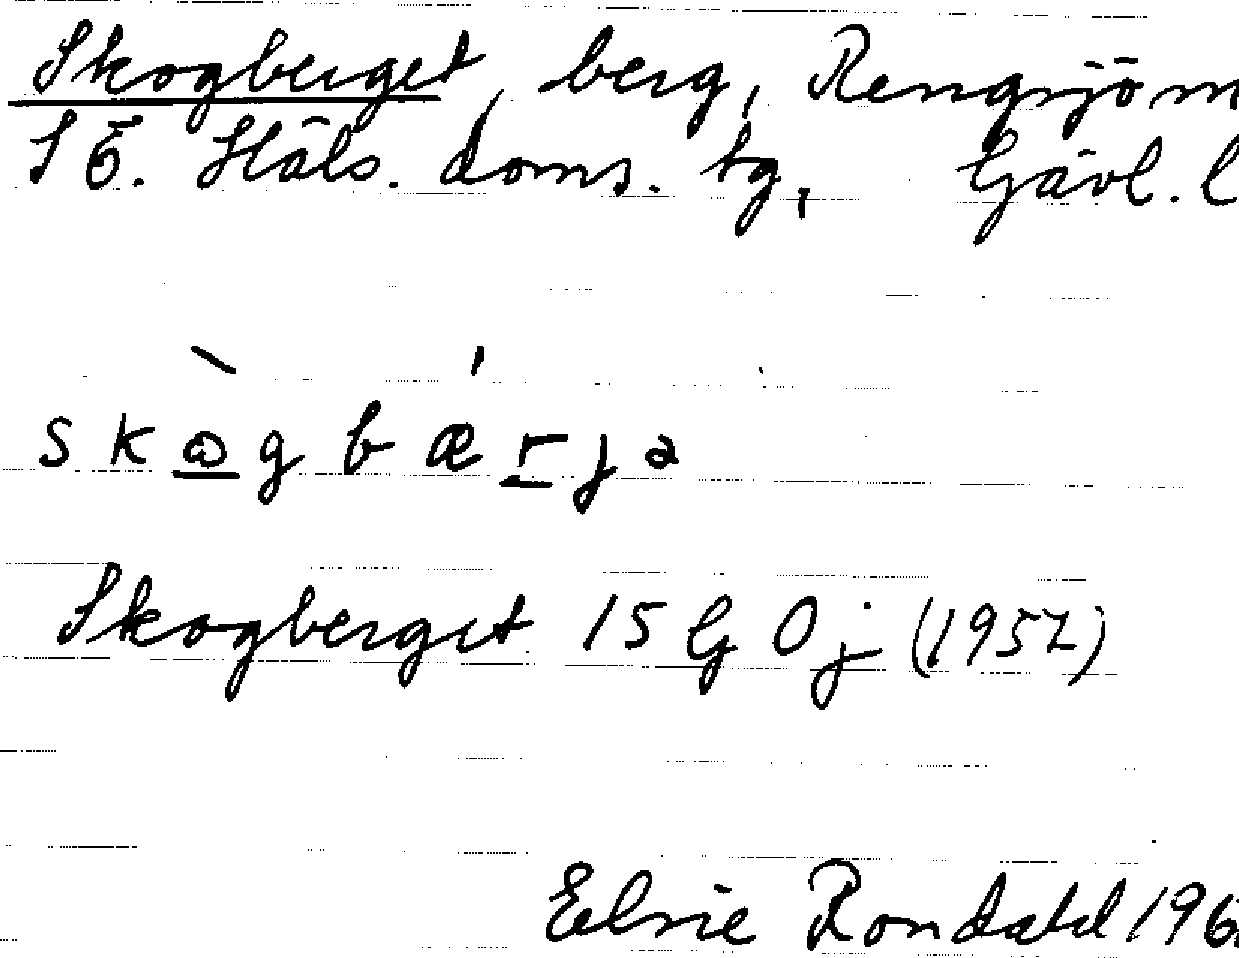 Skogberget, berg, Rengsjö
SÖ. Häls. doms. tg, Gävl. l
skɷgbærja
Skogberget 15 G 0 j (1957)
Elsie Rondahl 196